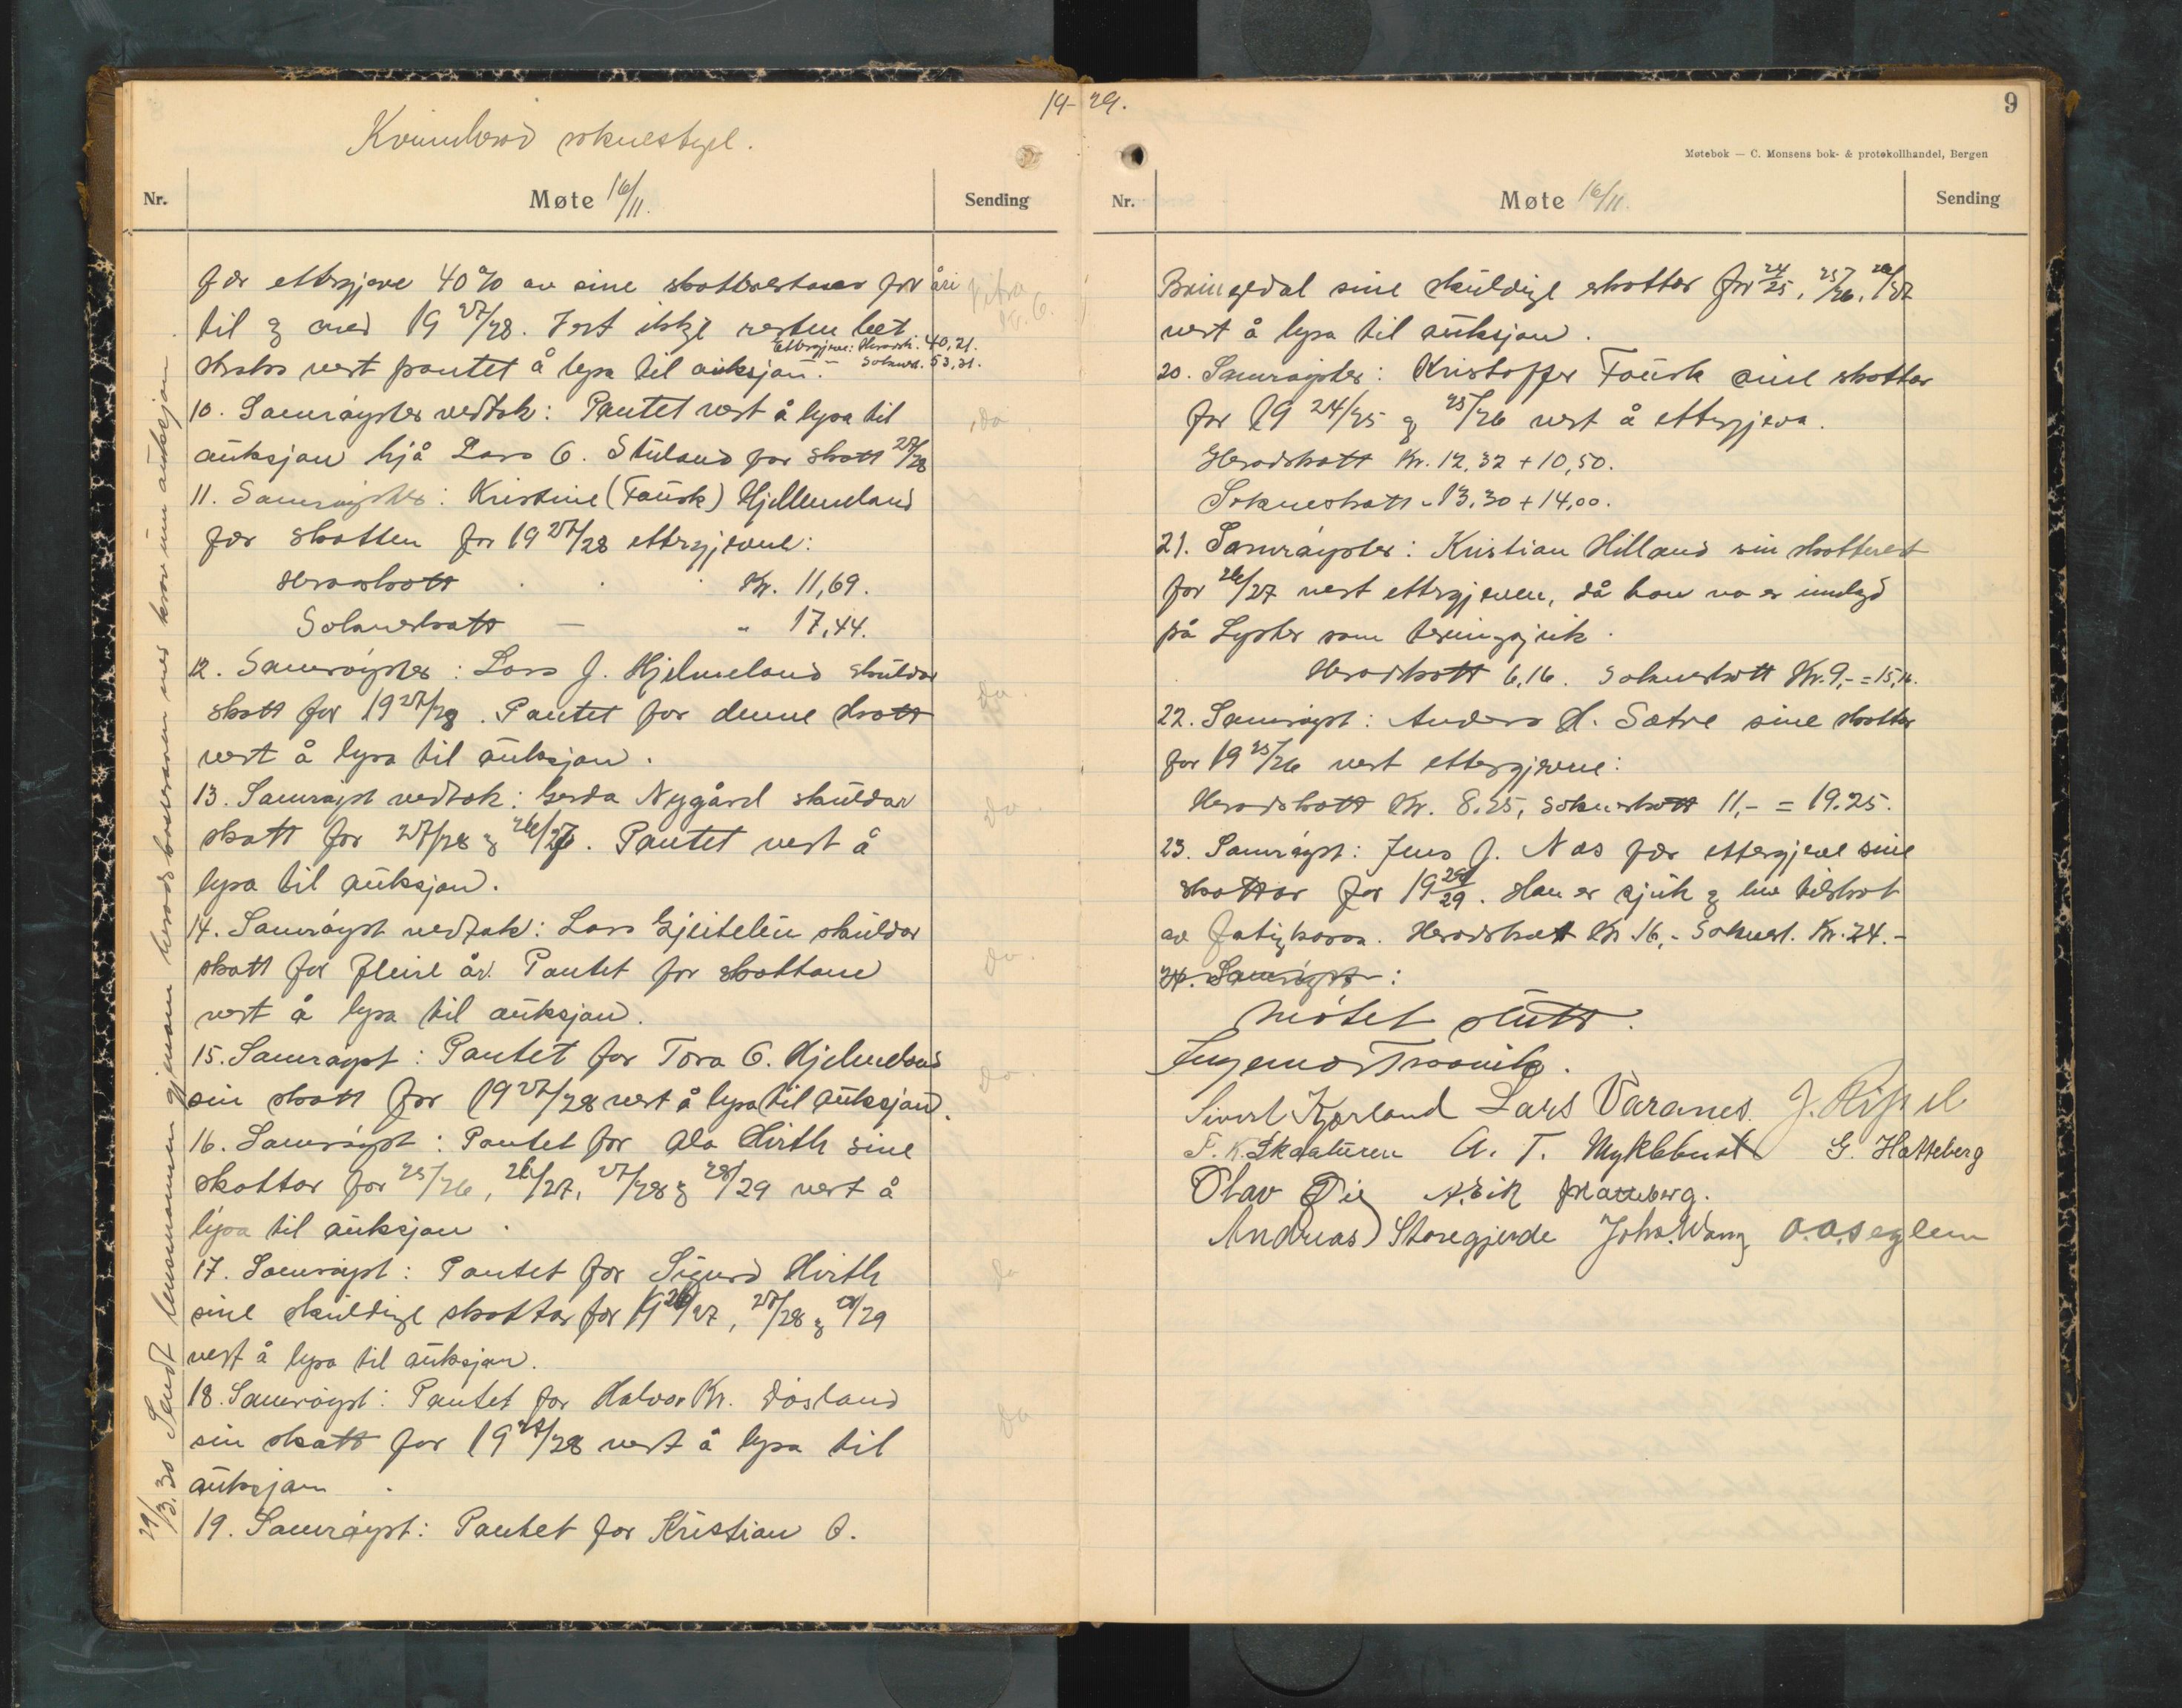 Kvinnherad soknestyre.
19-29.
Nr.
Møte 16/11.
Sending
fær ettergjeve 40% av sine skatterestar for åri
til og med 19 27/28. Vert ikkje resten bet.
Ettergjeve: Heradsk. 40,21.
straks vert pantet å lysa til auksjon. Soknesk. 53,31.
10. Samrøystes vedtok: Pantet vert å lysa til
auksjon hjå Lars O. Stuland for skatt 27/28
11. Samrøystes: Kristine (Fausk) Hjelmeland
fær skatten for 19 27/28 ettergjevne:
Heradskatt Kr. 11,69.
Sokneskatt — " 17,44.
12. Samrøystes: Lars J. Hjelmeland skuldar
skatt for 19 27/28. Pantet for denne skatt
vert å lysa til auksjon.
13. Samrøyst vedtok: Gerda Nygård skuldar
skatt for 27/28 og 26/27. Pantet vert å
lysa til auksjon.
14. Samrøyst vedtok: Lars Gjeitelein skuldar
skatt for fleire år. Pantet for skattane
vert å lysa til auksjon.
15. Samrøyst: Pantet for Tora O. Hjelmeland
sin skatt for 19 27/28 vert å lysa til auksjon.
16. Samrøyst: Pantet for Ola Hirth sine
skattar for 25/26, 26/27, 27/28 og 28/29 vert å
lysa til auksjon.
17. Samrøyst: Pantet for Sigurd Hirth
sine skuldige skattar for 19 26/27, 27/28 og 28/29
vert å lysa til auksjon.
18. Samrøyst: Pantet for Halvor Kr. Døsland
sin skatt for 19 27/28 vert å lysa til
auksjon.
19. Samrøyst: Pantet for Kristian O.
do.
do.
do.
do.
do.
do
do
29/3.30 Sendt lensmannen gjenom heradskasseraren med krav um auksjon.
9
Møtebok — C. Monsens bok- & protokollhandel, Bergen
Nr.
Møte 16/11.
Sending
Bringedal sine skuldige skattar for 24/25, 25/26, 26/27
vert å lysa til auksjon.
20. Samrøystes: Kristoffer Fausk sine skattar
for 19 24/25 og 25/26 vert å ettergjeva.
Heradskatt Kr. 12,32 + 10,50.
Sokneskatt " 13,30 + 14,00.
21. Samrøystes: Kristian Hilland sin skatterest
for 26/27 vert ettergjeven, då han no er innlagd
på Lyster som tæringssjuk.
Heradskatt 6,16. Sokneskatt Kr. 9,- = 15,16.
22. Samrøyst: Anders H. Sætre sine skattar
for 19 25/26 vert ettergjevne:
Heradskatt Kr. 8.25, Sokneskatt 11,- = 19.25.
23. Samrøyst: Jens J. Næs fær ettergjeve sine
skattar for 19 28/29. Han er sjuk og hev tilskot
av fatigkassa. Heradskatt Kr 16,- Soknesk. Kr. 24.-
24. Samrøyst:
Møtet slutt.
Ingemar Traavik.
Sivert Kjærland Lars Varanes. J. Ripel
T. K. Skaaluren A. T. Myklebust G. Hatteberg
Olav Øie A. Eik
Andreas Storegjerde Johs. Wang O. O. Seglem